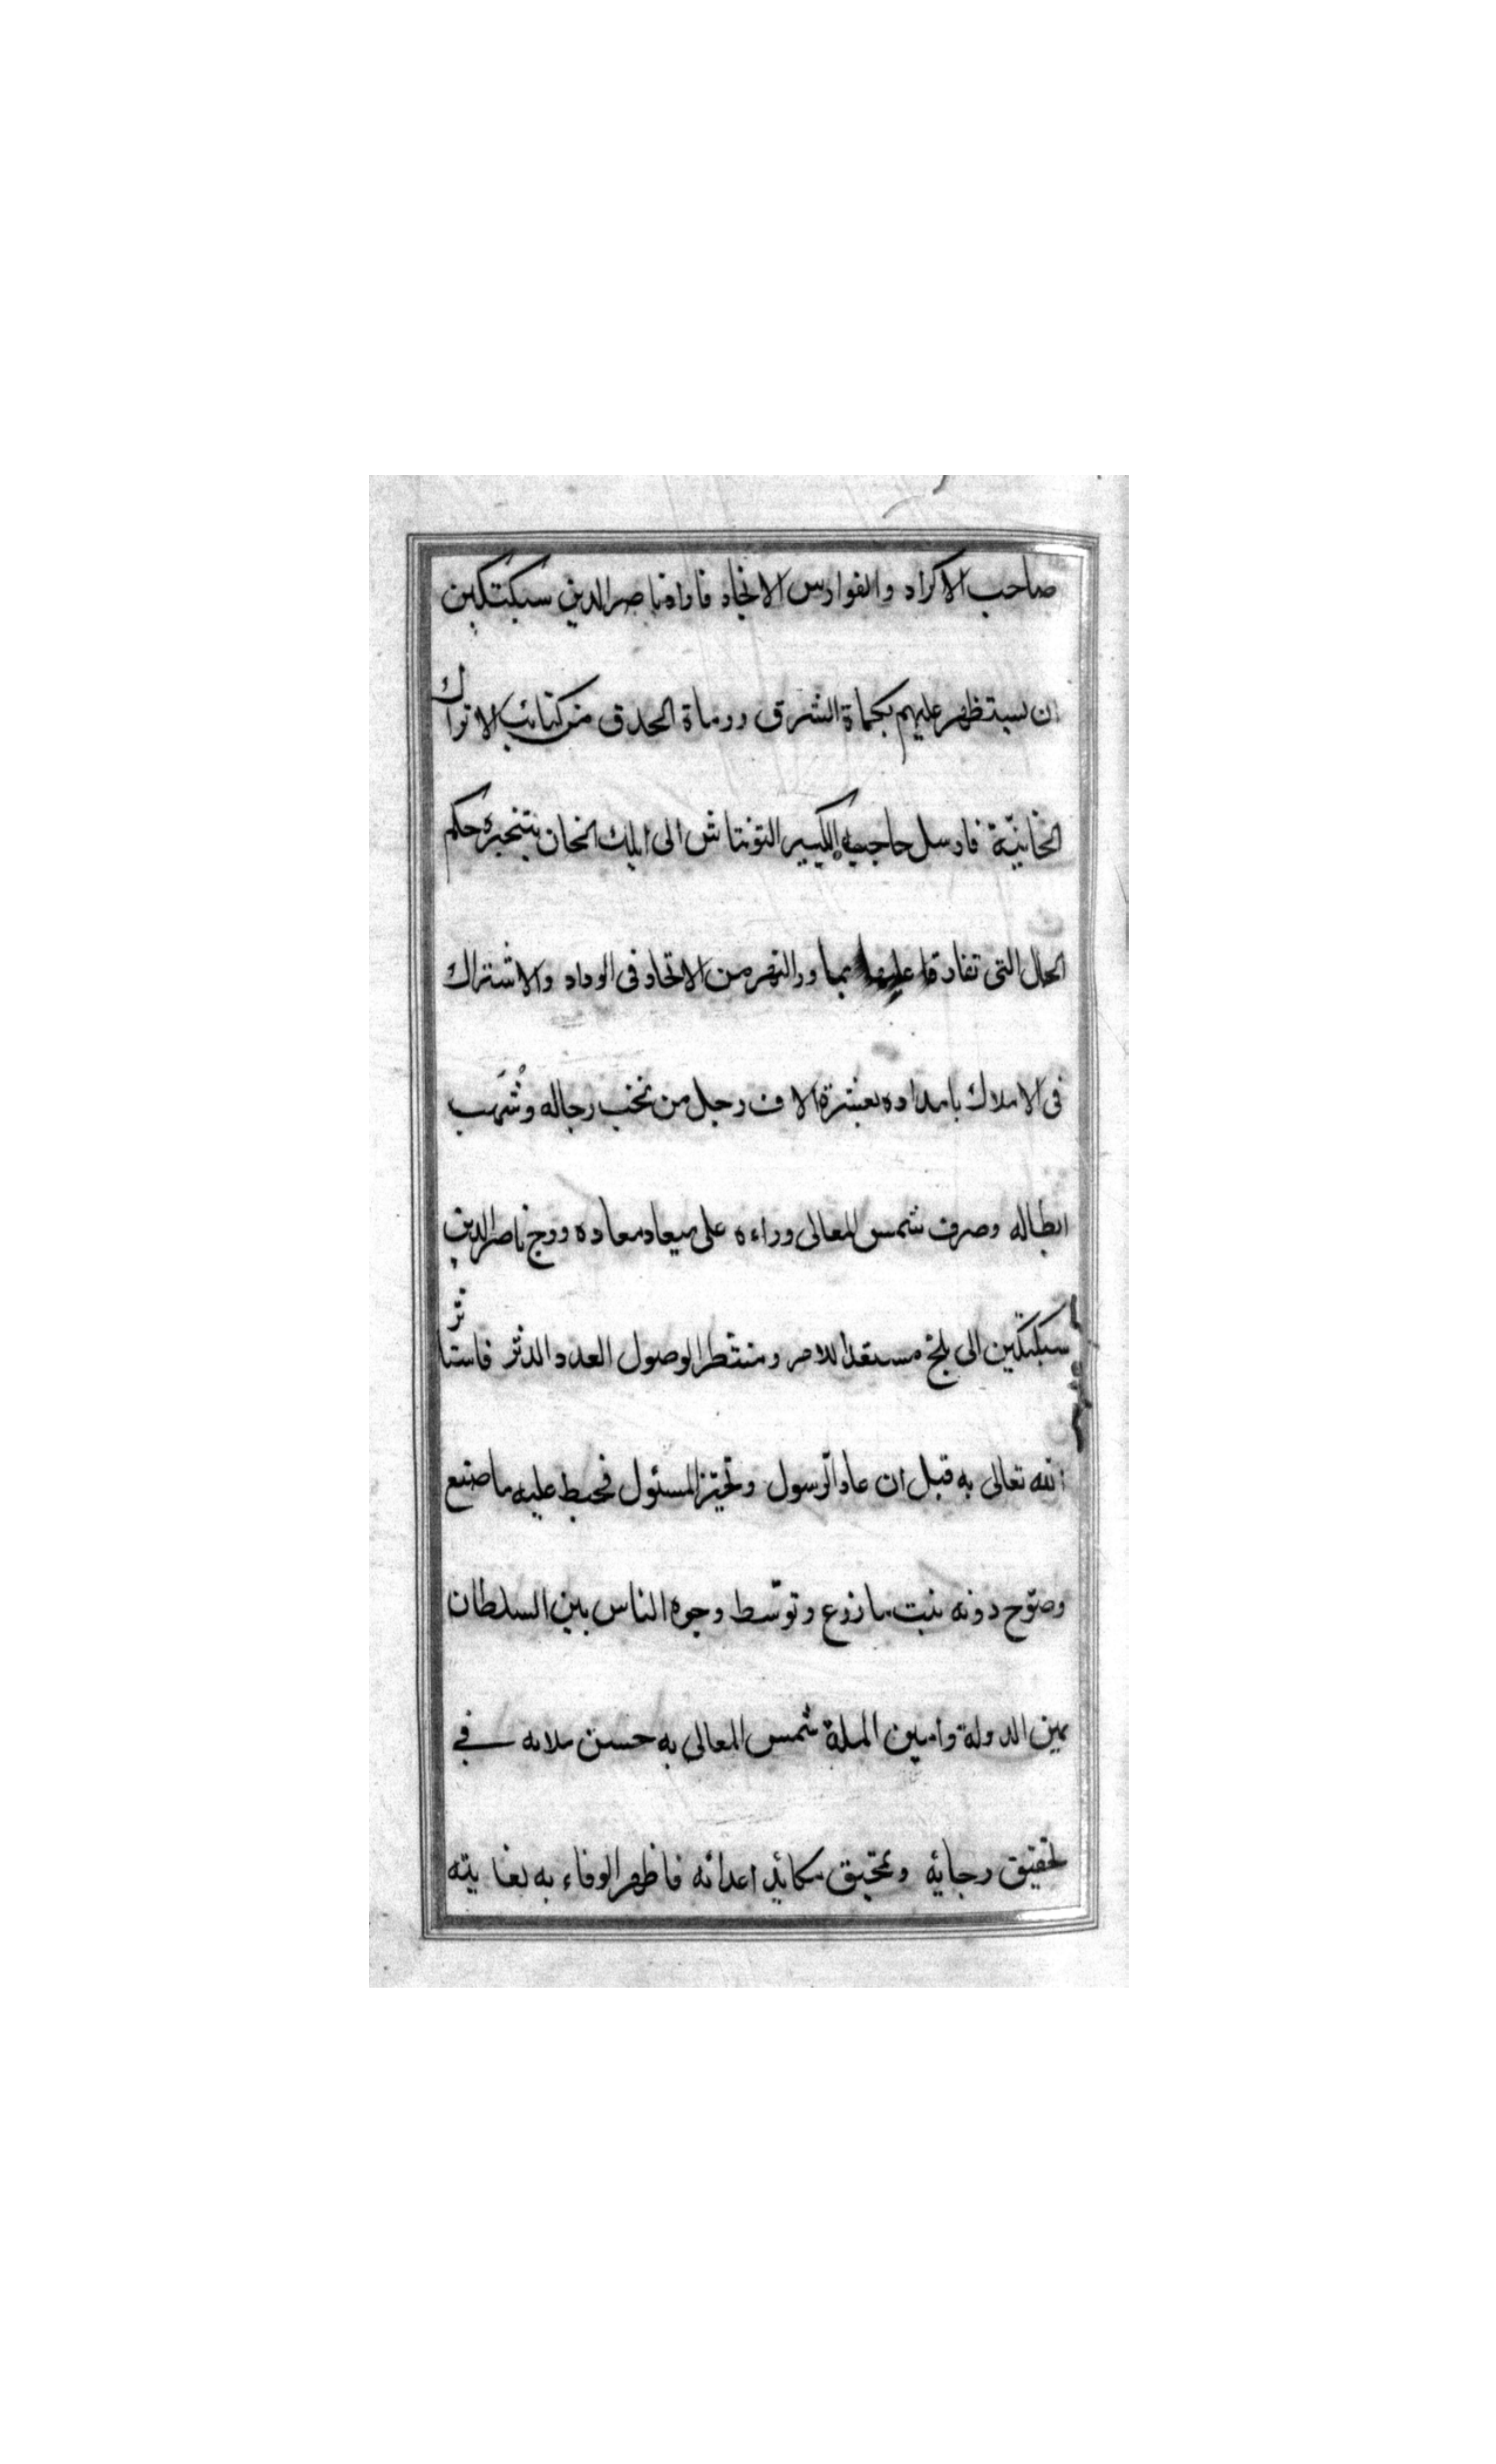 صاحب الاكراد والفوارس الانجاد فاراد ناصر الدين سبكتكين
ان يستظهر عليهم بحماة الشرق ورماة الحدق من كتائب الاتراك
الخانيّة فارسل حاجبه الكبير التونتاش الى ايلك الخان يتنجزه حكم
الحال التى تفارقا عليها بما ورالنهر من الاتحاد فى الوداد والاشتراك
فى الاملاك بامداده بعشرة الاف رجل من نخب رجاله وشُهَب
ابطاله وصرف شمس المعالى وراءه على ميعاد معاده ودرج ناصر الدين
سبكتكين الى بلخ مستعدا للامر ومنتظرا لوصول العدد الدثر فاستاثر
الله تعالى به قبل ان عاد الرسول وتحيّز المسئول فحبط عليه ما صنع
وصوّح دونه نبت ما زرع وتوسّط وجوه الناس بين السلطان
يمين الدولة وامين الملة شمس المعالى به حسن ملابه فى
تحقيق رجايه وتمحيق مكائد اعدائه فاظهر الوفاء به بغايته